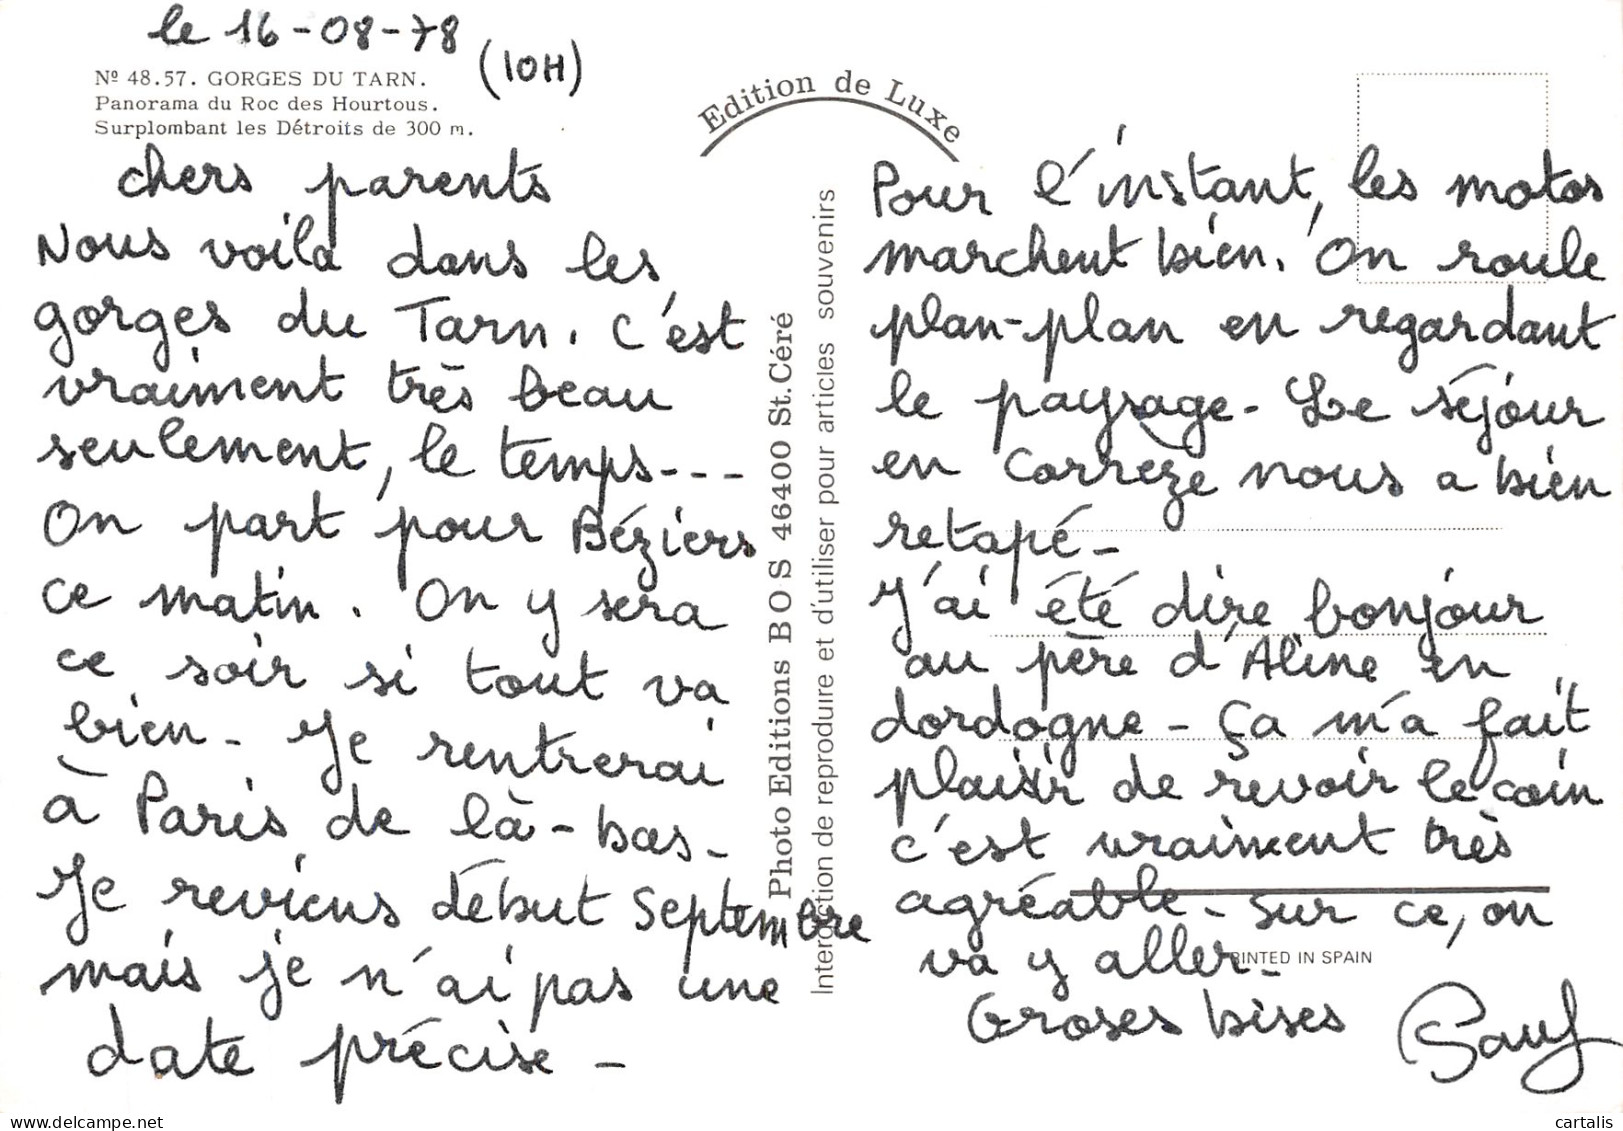 le 16-08-78
(10H)
Nº 48.57. GORGES DU TARN.
Panorama du Roc des Hourtous.
Surplombant les Détroits de 300 m.
chers parents
Nous voilà dans les
gorges du Tarn. C'est
vraiment très beau
seulement, le temps---
On part pour Béziers
ce matin. On y sera
ce soir si tout va
bien - Je rentrerai
à Paris de là-bas -
Je reviens début Septembre
mais je n'ai pas une
date précise -
Edition de Luxe
Photo Editions BOS 46400 St. Céré
Interdiction de reproduire et d'utiliser pour articles souvenirs
Pour l'instant, les motos
marchent bien. On roule
plan-plan en regardant
le paysage - Le séjour
en Corrèze nous a bien
retapé -
J'ai été dire bonjour
au père d'Aline en
dordogne - Ça m'a fait
plaisir de revoir le coin
c'est vraiment très
agréable - Sur ce, on
va y aller -
PRINTED IN SPAIN
Groses bises
cartalis